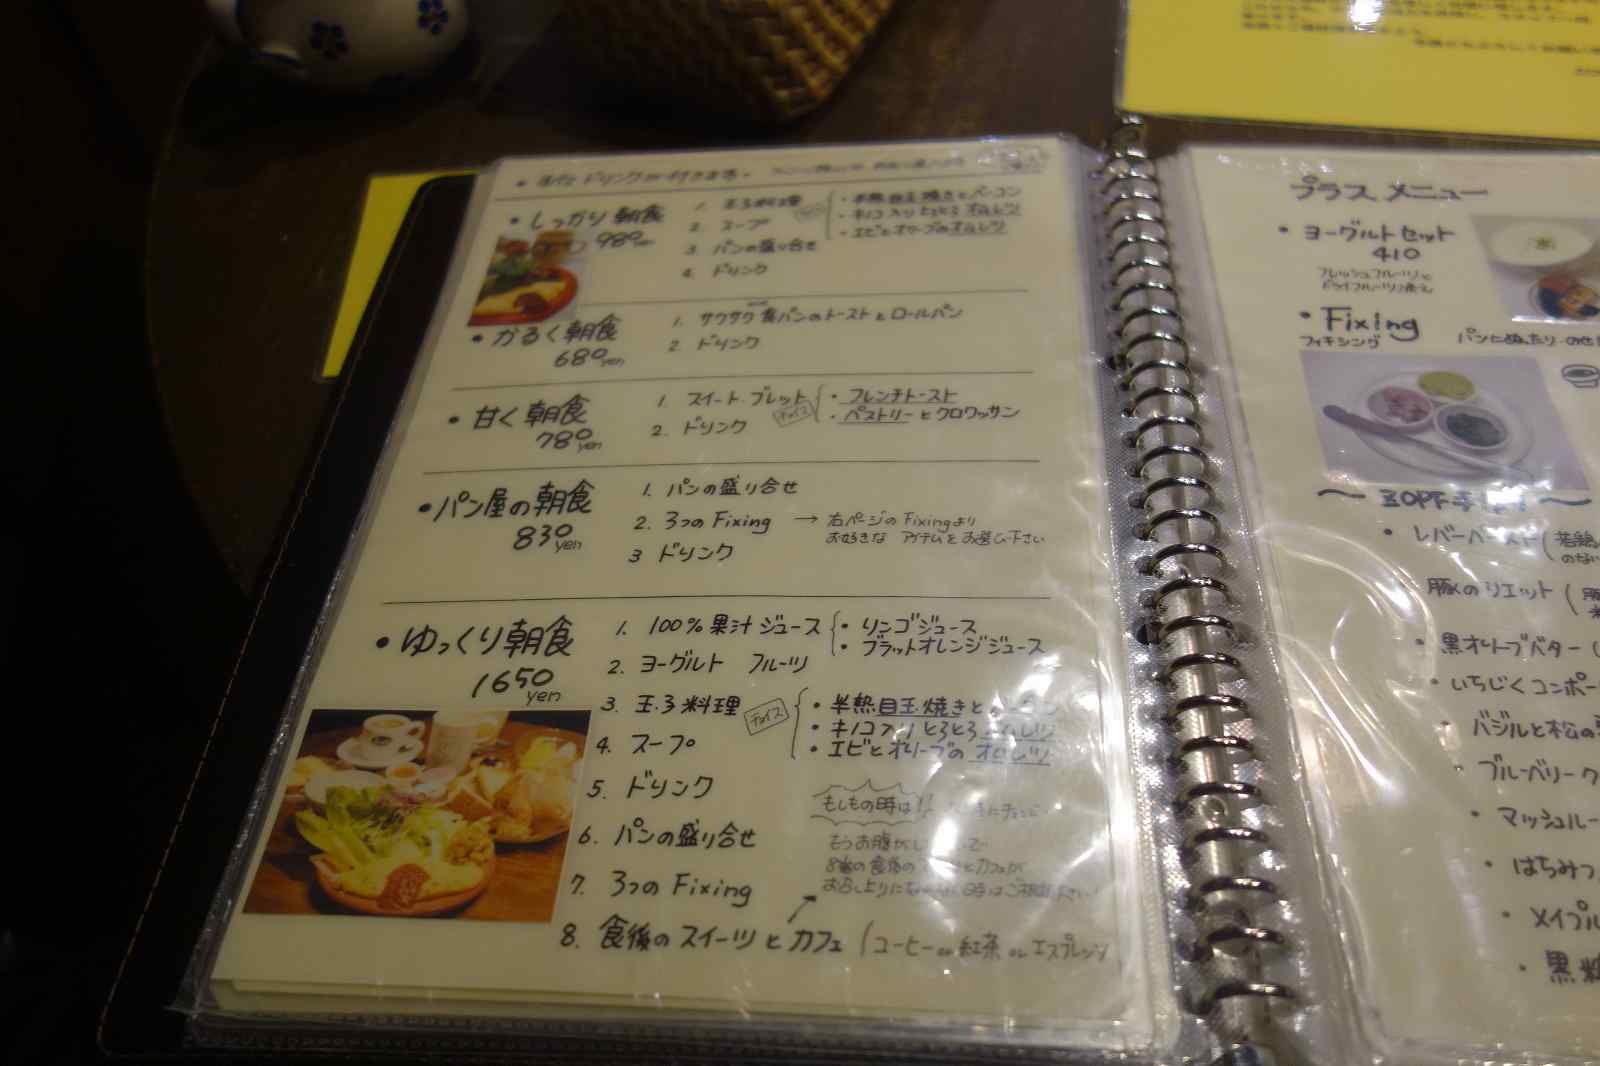 ・しっかり朝食
980yen
1. 玉子料理
・半熟目玉焼きとベーコン
・キノコ入りとろとろオムレツ
・エビとオリーブのオムレツ
2. スープ
3. パンの盛り合せ
4. ドリンク
・かるく朝食
680yen
1. サクサク食パンのトーストとロールパン
2. ドリンク
・甘く朝食
780yen
1. スイート・ブレット
チョイス
・フレンチトースト
・ペストリーとクロワッサン
2. ドリンク
・パン屋の朝食
830yen
1. パンの盛り合せ
2. 3つのFixing → 右ページのFixingより
お好きな アイテムをお選び下さい
3 ドリンク
・ゆっくり朝食
1650
yen
1. 100%果汁ジュース
・リンゴジュース
・ブラットオレンジジュース
2. ヨーグルト フルーツ
3. 玉子料理
チョイス
・半熟目玉焼きと
・キノコ入りとろとろオムレツ
・エビとオリーブのオムレツ
4. スープ
5. ドリンク
6. パンの盛り合せ
7. 3つのFixing
8. 食後のスイーツとカフェ (コーヒー or 紅茶 or エスプレッソ
もしもの時は!!
もうお腹が
8番の食後の
プラスメニュー
・ヨーグルトセット
410
フレッシュフルーツと
ドライフルーツ
・Fixing
フィキシング
パンにぬったり のせ
・レバーペースト(若鶏
のない
豚のリエット(豚
・黒オリーブバター(
・いちじくコンポー
バジルと松の
・ブルーベリーク
・マッシュルー
・はちみつ
・メイプル
・黒糖